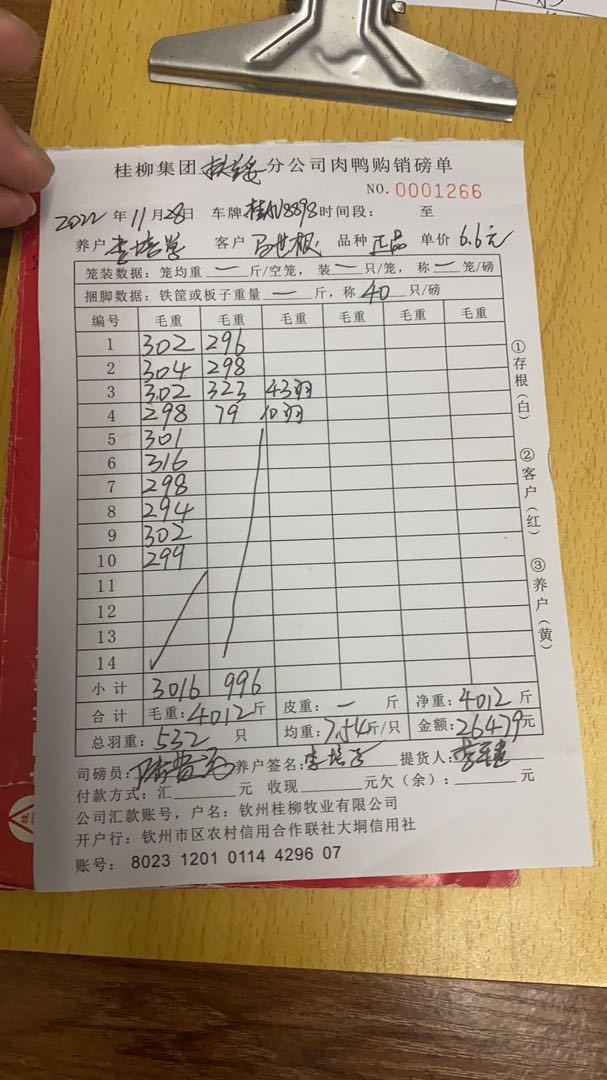 桂柳集团 分公司肉鸭购销磅单
NO. 0001266
2022年11月28日 车牌 桂AV8898 时间段： 至
养户 李培学 客户 马世根 品种 正品 单价 6.6元
笼装数据：笼均重 一 斤/空笼，装 一 只/笼，称 一 笼/磅
捆脚数据：铁筐或板子重量 一 斤，称 40 只/磅
编号 毛重 毛重 毛重 毛重 毛重 毛重
1 302 296
2 304 298
3 302 323 43羽
4 298 79 10羽
5 301
6 316
7 298
8 294
9 302
10 299
11
12
13
14
小计 3016 996
合计 毛重：4012斤 皮重：一 斤 净重：4012斤
总羽重：532 只 均重：7.54斤/只 金额：26479元
司磅员： 养户签名： 提货人：
付款方式：汇 元 收现 元欠（余）： 元
公司汇款账号，户名：钦州桂柳牧业有限公司
开户行：钦州市区农村信用合作联社大垌信用社
账号：8023 1201 0114 4296 07
①存根（白） ②客户（红） ③养户（黄）